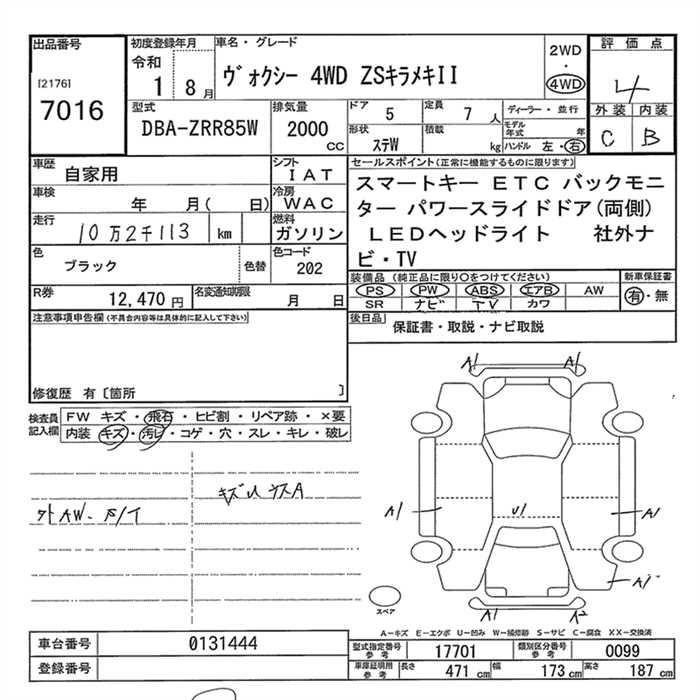 出品番号
[2176]
7016
初度登録年月
令和
1 8月
車名・グレード
ヴォクシー 4WD ZSキラメキII
2WD
・
4WD
評価点
4
外装 内装
C B
型式
DBA-ZRR85W
排気量
2000
CC
ドア 5
定員 7 人
形状 ステW
積載 kg
ディーラー・並行
モデル年式 年
ハンドル 左・右
車歴 自家用
シフト IAT
車検 年 月( 日)
冷房 WAC
走行 10万2千113 km
燃料 ガソリン
色 ブラック 色替
色コード 202
R券 12,470 円
名変通知期限 月 日
セールスポイント(正常に機能するものに限ります)
スマートキー ETC バックモニ
ター パワースライドドア(両側)
LEDヘッドライト 社外ナ
ビ・TV
装備品 (純正品に限り○をつけてください)
PS PW ABS エアB AW
SR ナビ TV カワ
新車保証書
有・無
後日品 保証書・取説・ナビ取説
注意事項申告欄(不具合内容等は具体的に記入して下さい)
修復歴 有〔箇所 〕
検査員記入欄
FW キズ・飛石・ヒビ割・リペア跡・×要
内装 キズ・汚レ・コゲ・穴・スレ・キレ・破レ
外AW-
A1 A1
A1 U1 A1
A1
A1 A2
スペア
A−キズ E−エクボ U−凹み W−補修跡 S−サビ C−腐食 XX−交換済
車台番号 0131444
登録番号
型式指定番号参考 17701
類別区分番号参考 0099
車庫証明用参考 長さ 471 cm 幅 173 cm 高さ 187 cm